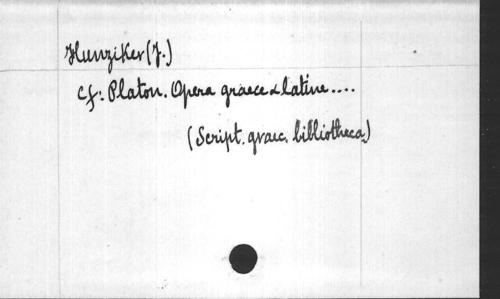 Hunziker (J.)
cf: Platon. Opera graece & latine....
(Script. graec. bibliotheca)